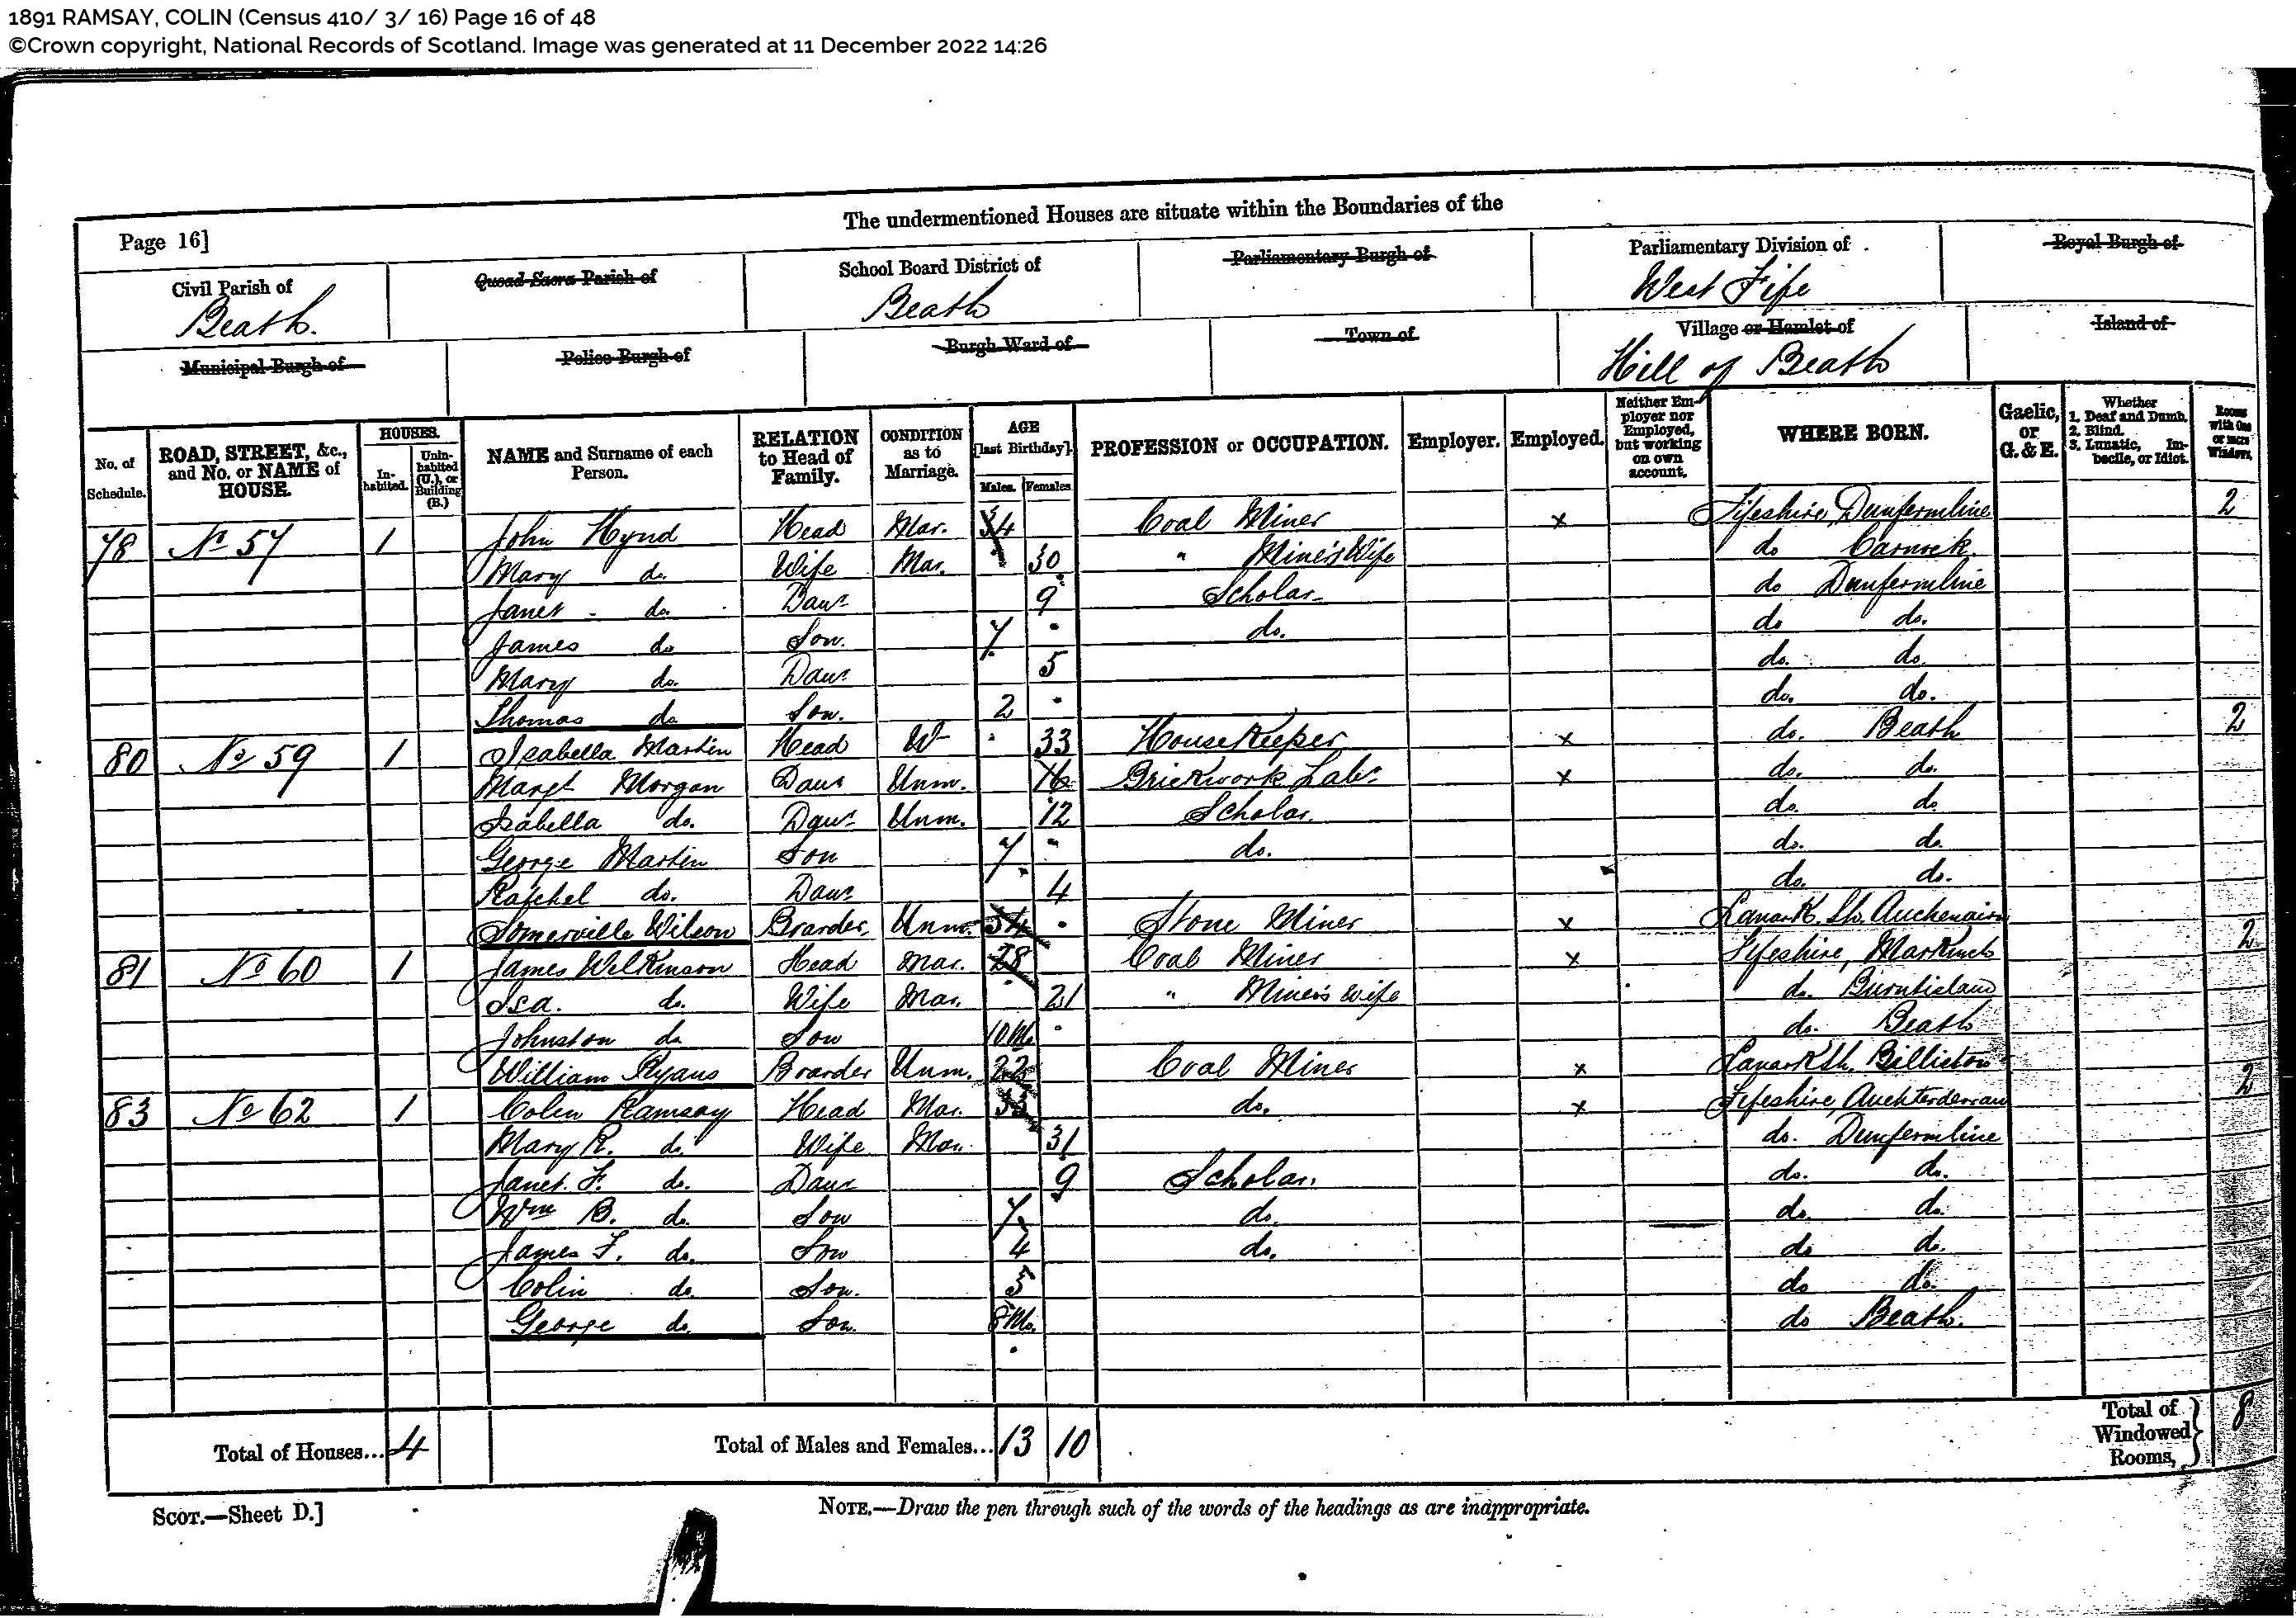 1891 RAMSAY, COLIN (Census 410/ 3/ 16) Page 16 of 48
©Crown copyright, National Records of Scotland. Image was generated at 11 December 2022 14:26
The undermentioned Houses are situate within the Boundaries of the
Page 16]
Civil Parish of Beath.
Quoad Sacra Parish of
School Board District of Beath
Parliamentary Burgh of
Parliamentary Division of West Fife
Royal Burgh of
Municipal Burgh of
Police Burgh of
Burgh Ward of
Town of
Village or Hamlet of Hill of Beath
Island of
No. of Schedule. ROAD, STREET, &c., and No. or NAME of HOUSE. HOUSES. Inhabited. Uninhabited (U.), or Building (B.) NAME and Surname of each Person. RELATION to Head of Family. CONDITION as to Marriage. AGE [last Birthday]. Males. Females. PROFESSION or OCCUPATION. Employer. Employed. Neither Employer nor Employed, but working on own account. WHERE BORN. Gaelic, or G. & E. Whether 1. Deaf and Dumb. 2. Blind. 3. Lunatic, Imbecile, or Idiot. Rooms with One or more Windows.
78 No 57 1 John Hynd Head Mar. 34 Coal Miner x Fifeshire, Dunfermline 2
Mary do. Wife Mar. 30 " Miner's Wife do Carnock
Janet do. Daur 9 Scholar do Dunfermline
James do Son. 7 do. do do.
Mary do. Daur 5 do. do
Thomas do Son. 2 do. do.
80 No 59 1 Isabella Martin Head W 33 HouseKeeper x do. Beath 2
Margt Morgan Daur Unm. 16 Brickwork Labr x do. do.
Isabella do. Daur Unm. 12 Scholar. do. do
George Martin Son 7 do. do. do.
Ratchel do. Daur 4 do. do.
Somerville Wilson Boarder Unm. 34 Stone Miner x Lanark Sh. 2
81 No 60 1 James Wilkinson Head Mar. 28 Coal Miner x Fifeshire, Markinch
Isa. do. Wife Mar. 21 " Miner's wife do. Burntisland
Johnston do Son 10 Mo. do. Beath
William Ryans Boarder Unm. 22 Coal Miner x Lanark Sh.
83 No 62 1 Colin Ramsay Head Mar. 33 do. x Fifeshire, Auchterderran 2
Mary R. do. Wife Mar. 31 do. Dunfermline
Janet F. do. Daur 9 Scholar. do. do.
Wm B. do. Son 7 do. do. do.
James F. do. Son 4 do. do do.
Colin do. Son. do do.
George do. Son. 8 Mo. do Beath.
Total of Houses... 4 Total of Males and Females... 13 10 Total of Windowed Rooms, 8
SCOT.—Sheet D.] NOTE.—Draw the pen through such of the words of the headings as are inappropriate.